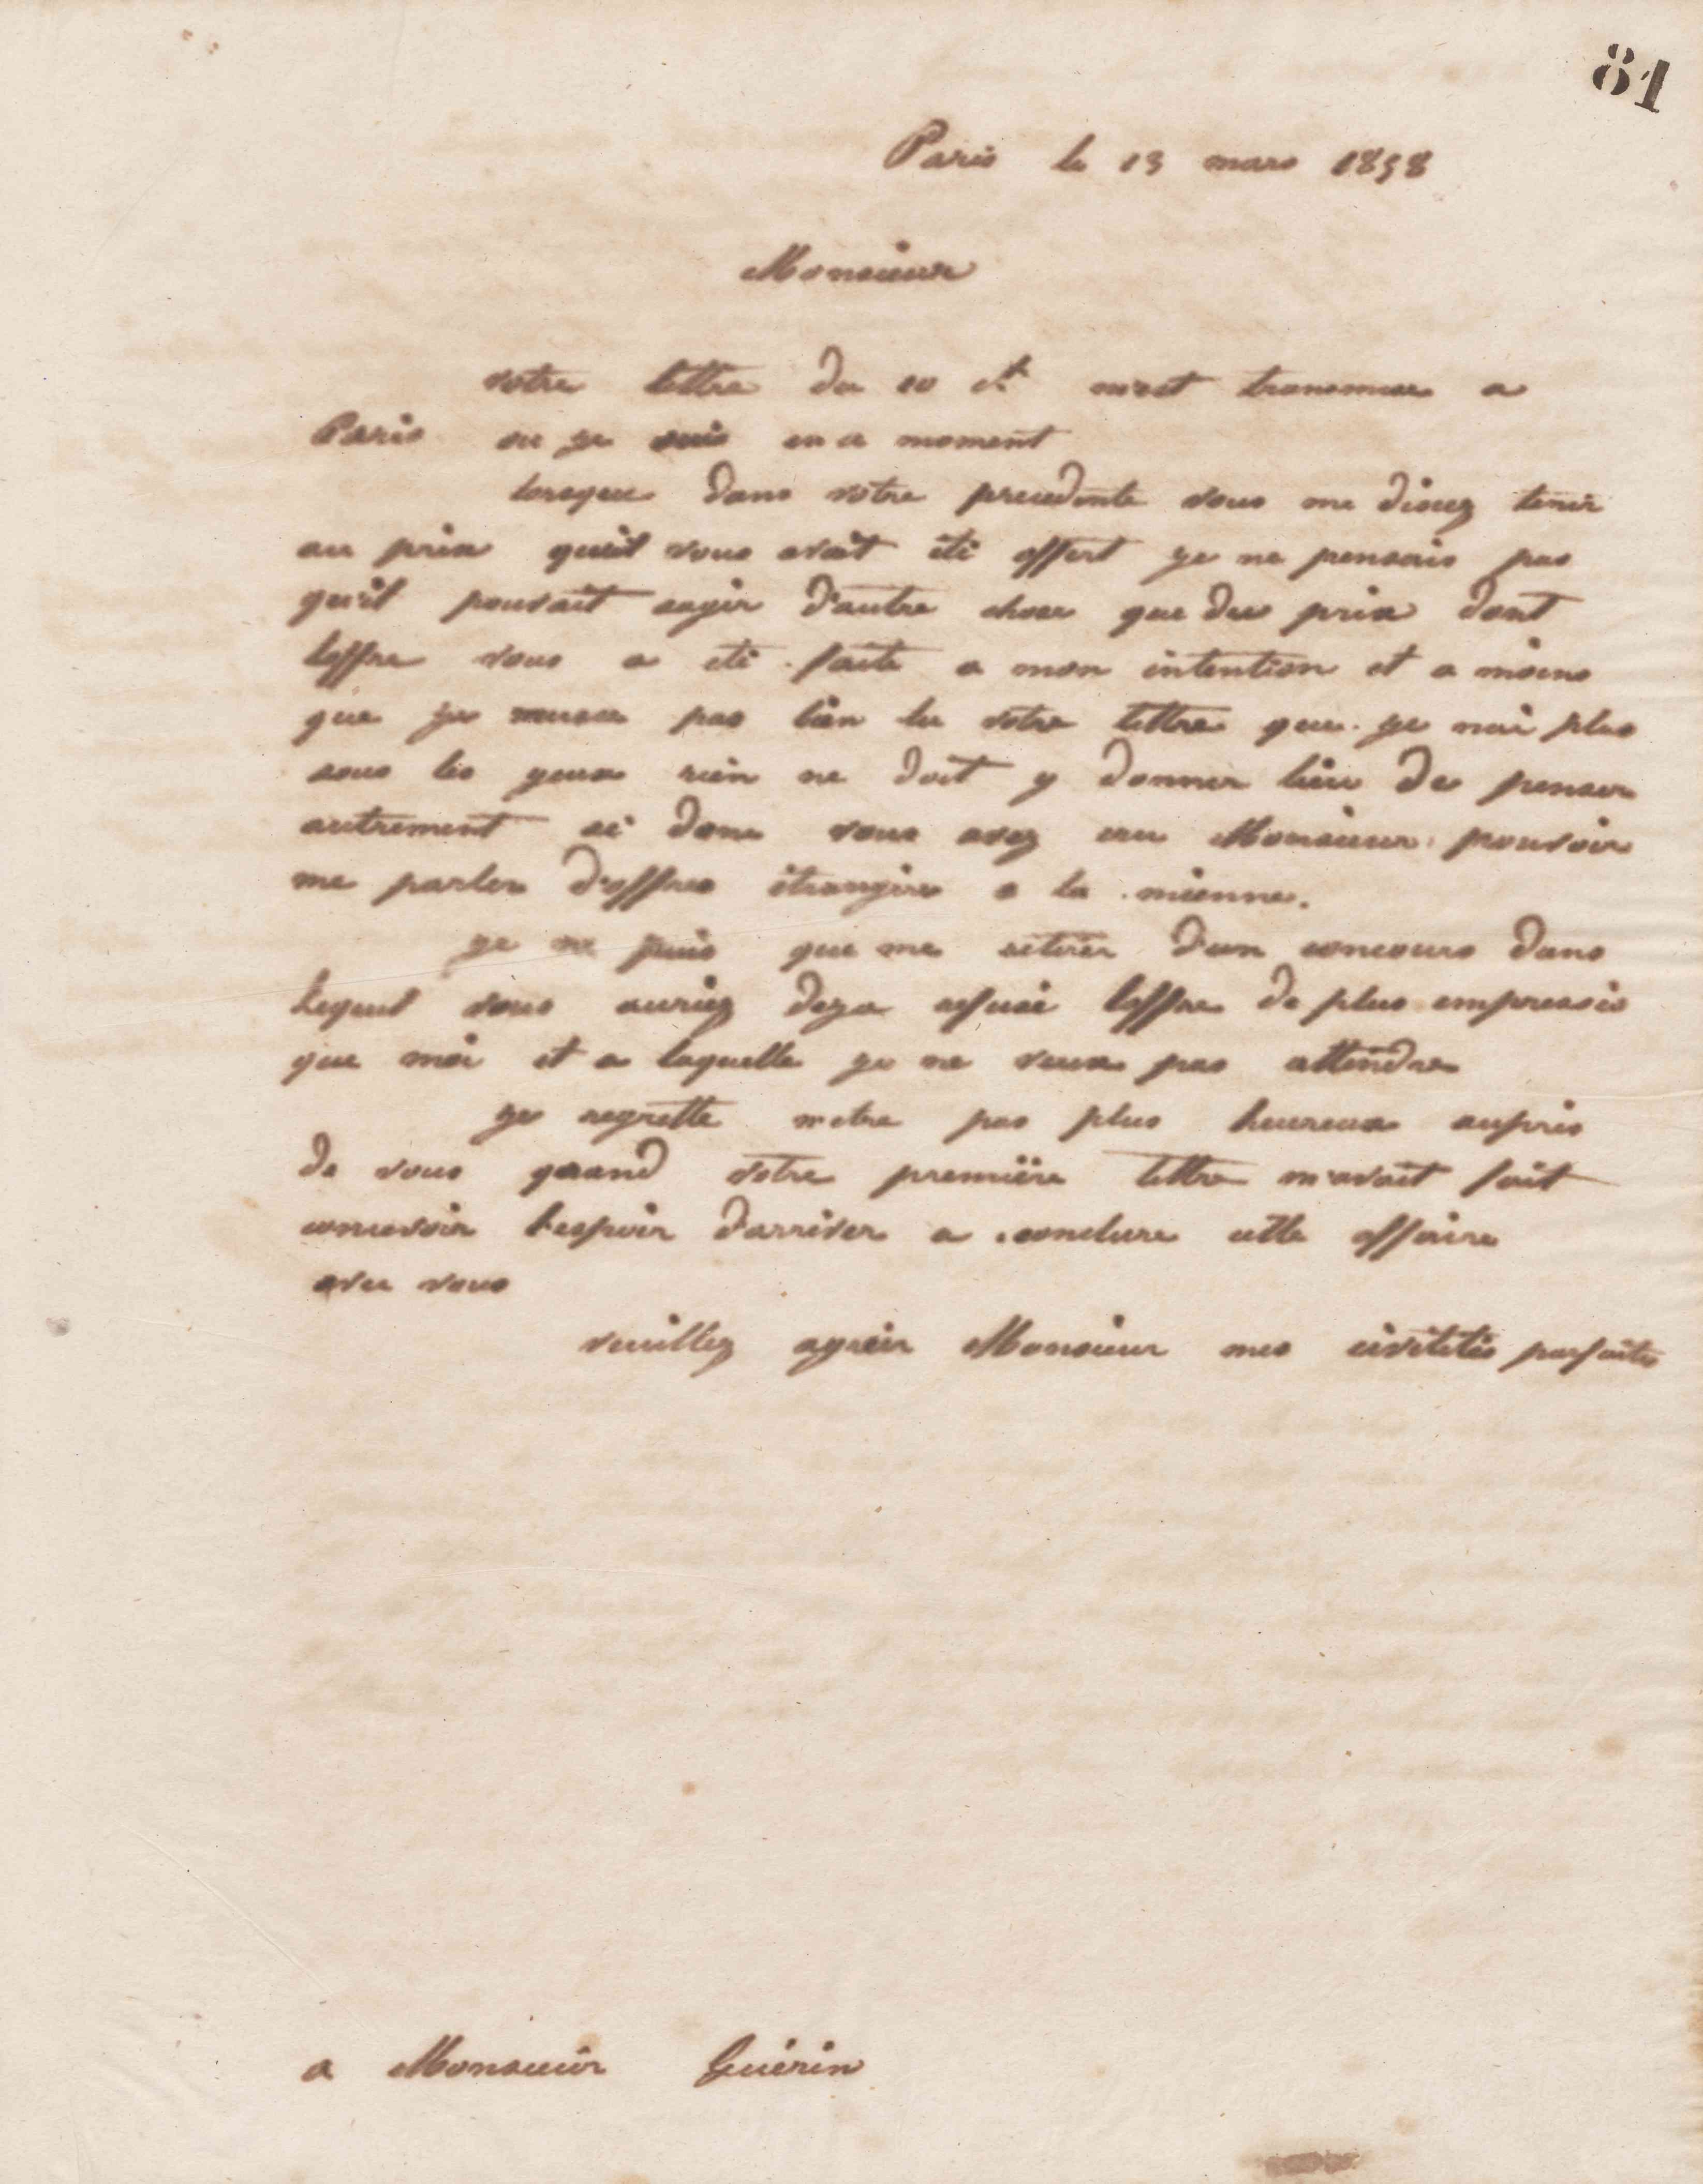 81
Paris le 13 mars 1858
Monsieur
votre lettre du 10 ct m'est transmise a
Paris ou je suis en ce moment
lorsque dans votre precedente vous me disiez tenir
au prix qu'il vous avait été offert je ne pensais pas
qu'il pouvait sagir d'autre chose que du prix dont
loffre vous a eté faite a mon intention et a moins
que je pas bien lu votre lettre que je nai plus
sous les yeux rien ne doit y donner lieu de penser
autrement si donc vous avez cru Monsieur pouvoir
me parler d'offres étrangère a la mienne.
je ne puis que me retirer d'un concours dans
lequel vous auriez deja refusé loffre de plus empressés
que moi et a laquelle je ne veux pas attendre
je regrette netre pas plus heureux auprès
de vous quand votre première lettre m'avait fait
concevoir l'espoir d'arriver a conclure cette affaire
avec vous
veuillez agréer Monsieur mes civilités parfaites
a Monsieur Guérin